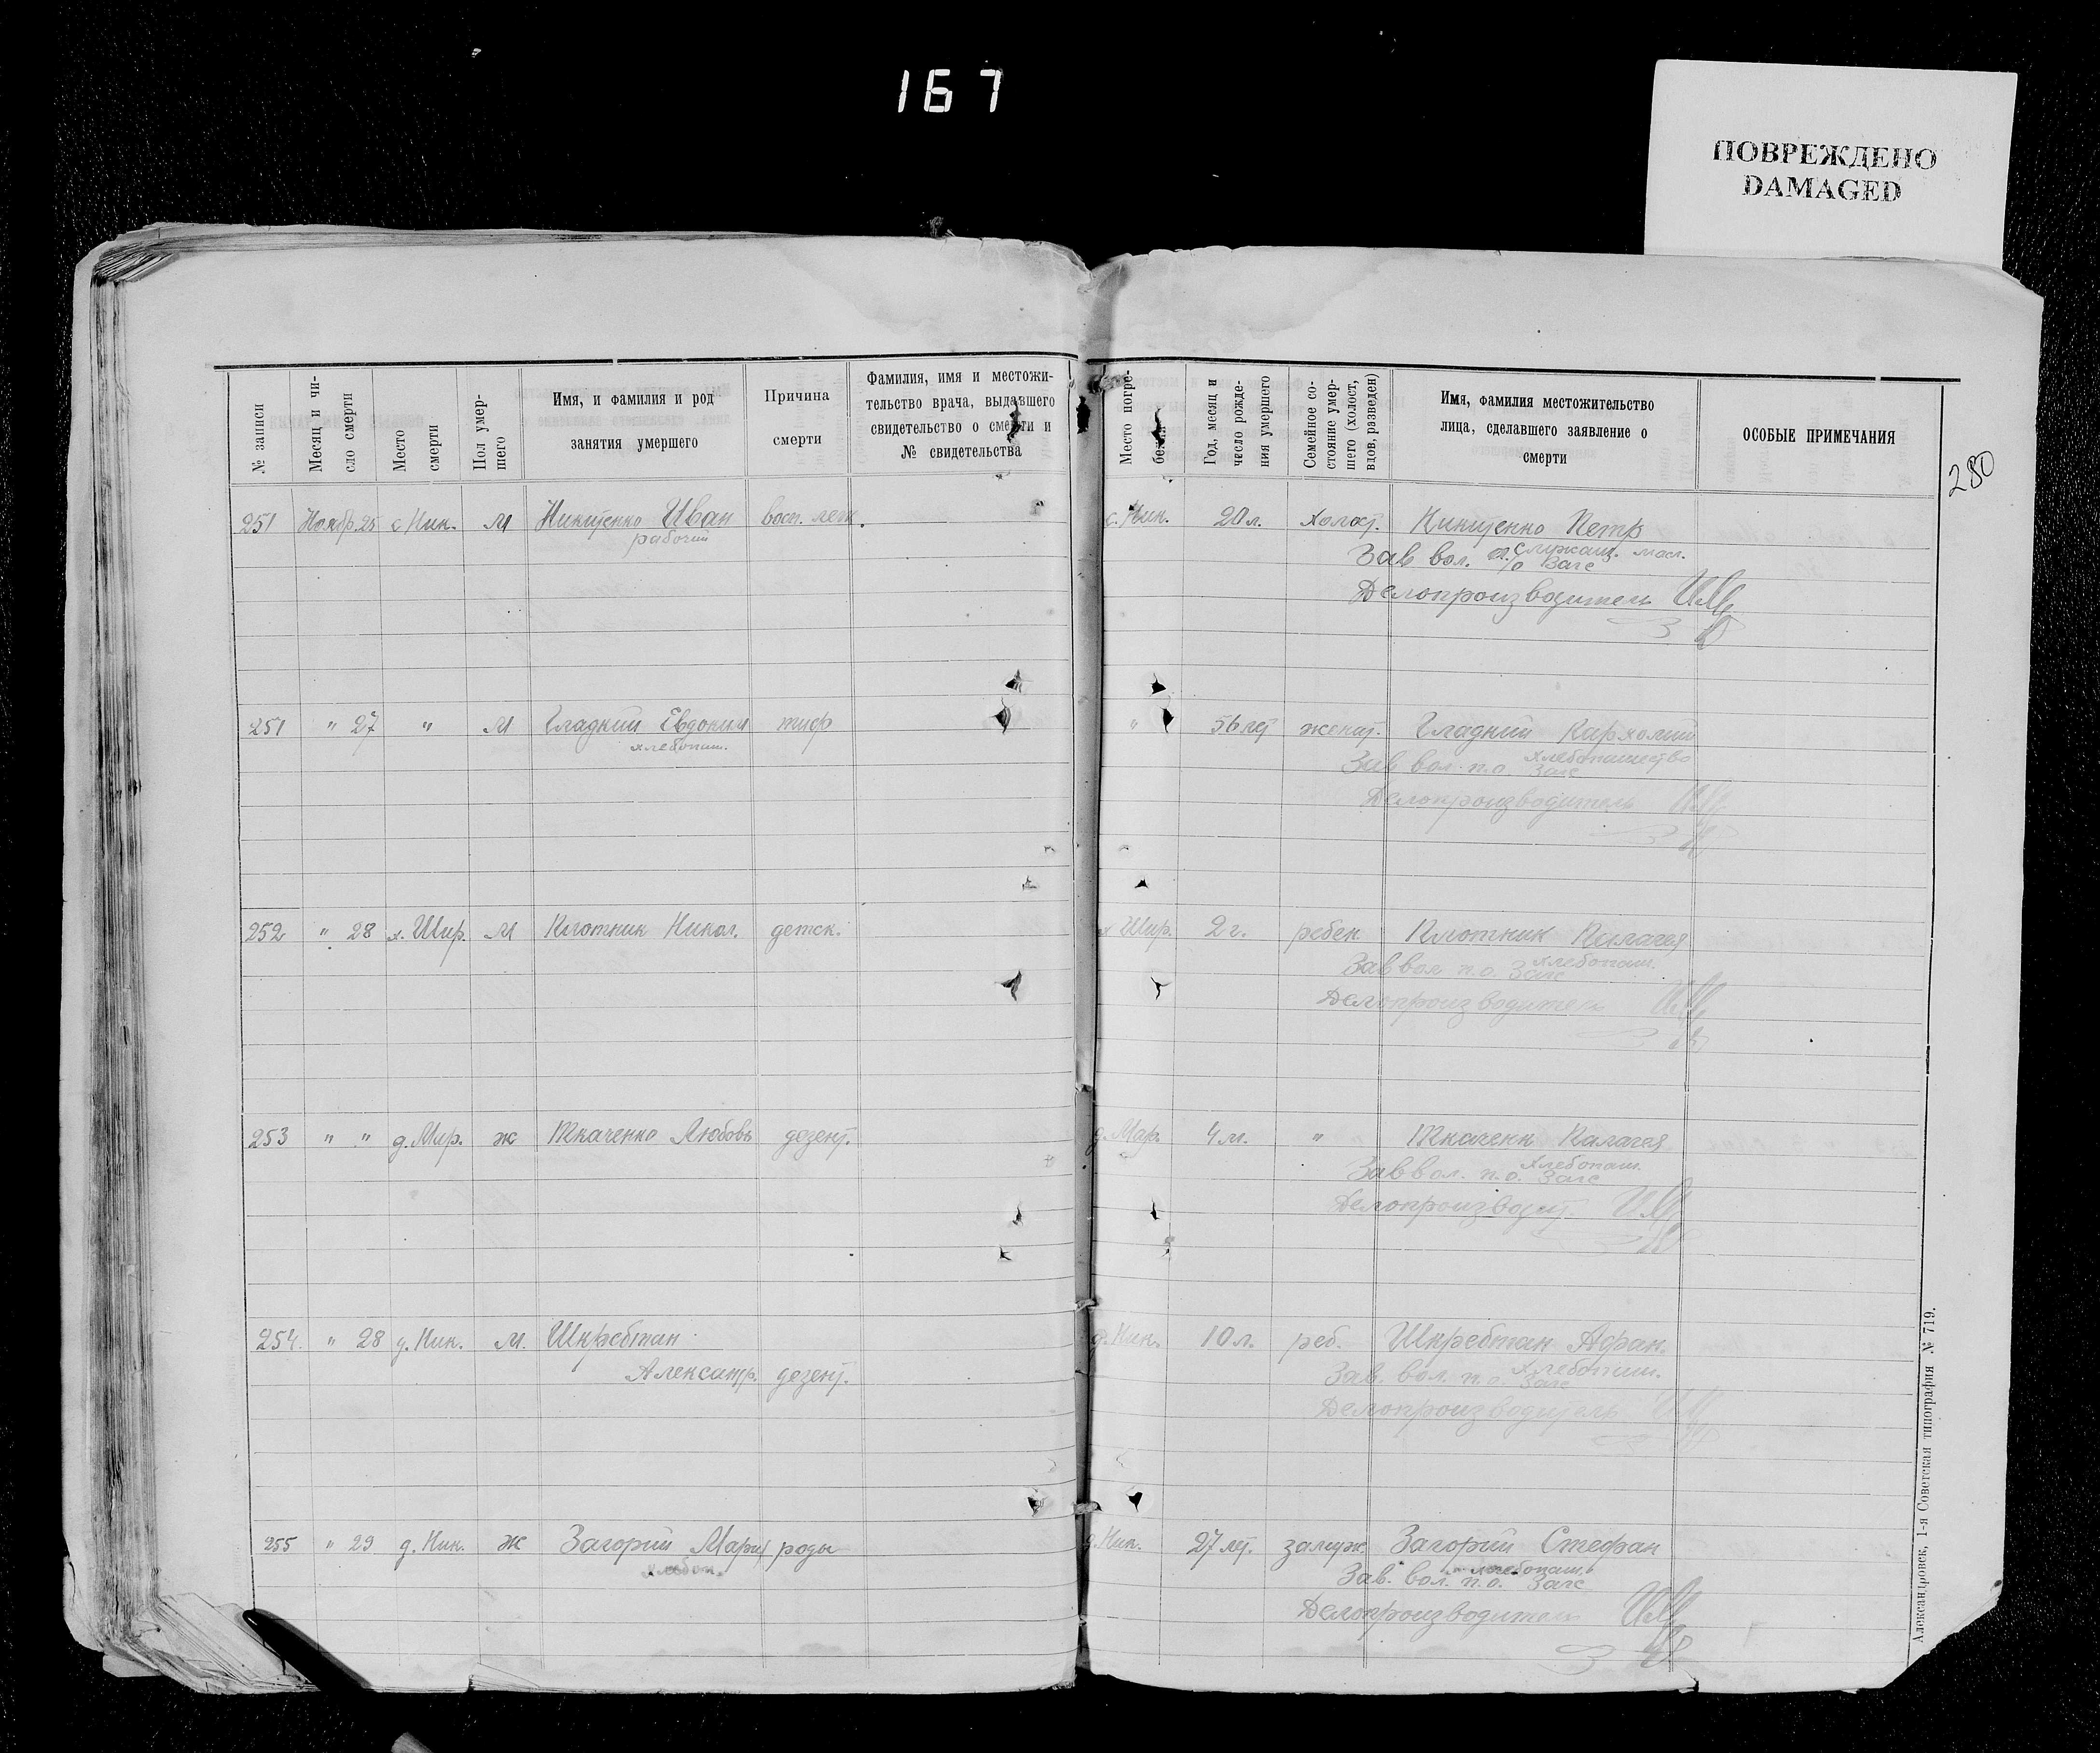 167
ПОВРЕЖДЕНО
DAMAGED
280
№ записи
Месяц и чи-
сло смерти
Место
смерти
Пол умер-
шего
Имя, и фамилия и род
занятия умершего
Причина
смерти
Фамилия, имя и местожи-
тельство врача, выдавшего
свидетельство о смерти и
№ свидетельства
Место погре-
бения
Год, месяц и
число рожде-
ния умершего
Семейное со-
стояние умер-
шего (холост,
вдов, разведен)
Имя, фамилия местожительство
лица, сделавшего заявление о
смерти
ОСОБЫЕ ПРИМЕЧАНИЯ
251 Ноябр. 25 с Ник. м Никитенко Иван восп. лег. с. Ник. 20 л. холост. Никитенко Петр
рабочий
служащ. масл.
Зав вол. п/о Загс
Делопроизводитель
251 " 27 " м Гладкий Евдоким тиф " 56 лет женат. Гладкий
хлебопаш.
хлебопашество
Зав вол. п.о. Загс
Делопроизводитель
252 " 28 х. Шир. м Плотник Никол. детск. х Шир. 2 г. ребен. Плотник Пелагея
хлебопаш.
Зав вол п.о. Загс
Делопроизводитель
253 " " д. Мар. ж Ткаченко Любовь дезент. д. Мар. 4 м. " Ткаченк Палагея
хлебопаш.
Зав вол. п.о. Загс
Делопроизводит.
254. " 28 д. Ник. м. Шкребтан д. Ник. 10 л. реб. Шкребтан Афан.
Александр. дезент.
хлебопаш.
Зав. вол. п.о. Загс
Делопроизводитель
255 " 29 д. Ник. ж Загорий Мария роды д. Ник. 27 лет. замуж. Загорий Стефан
хлебоп.
хлебопаш.
Зав. вол. п.о. Загс
Делопроизводитель
Александровск, 1-я Советская типография № 719.